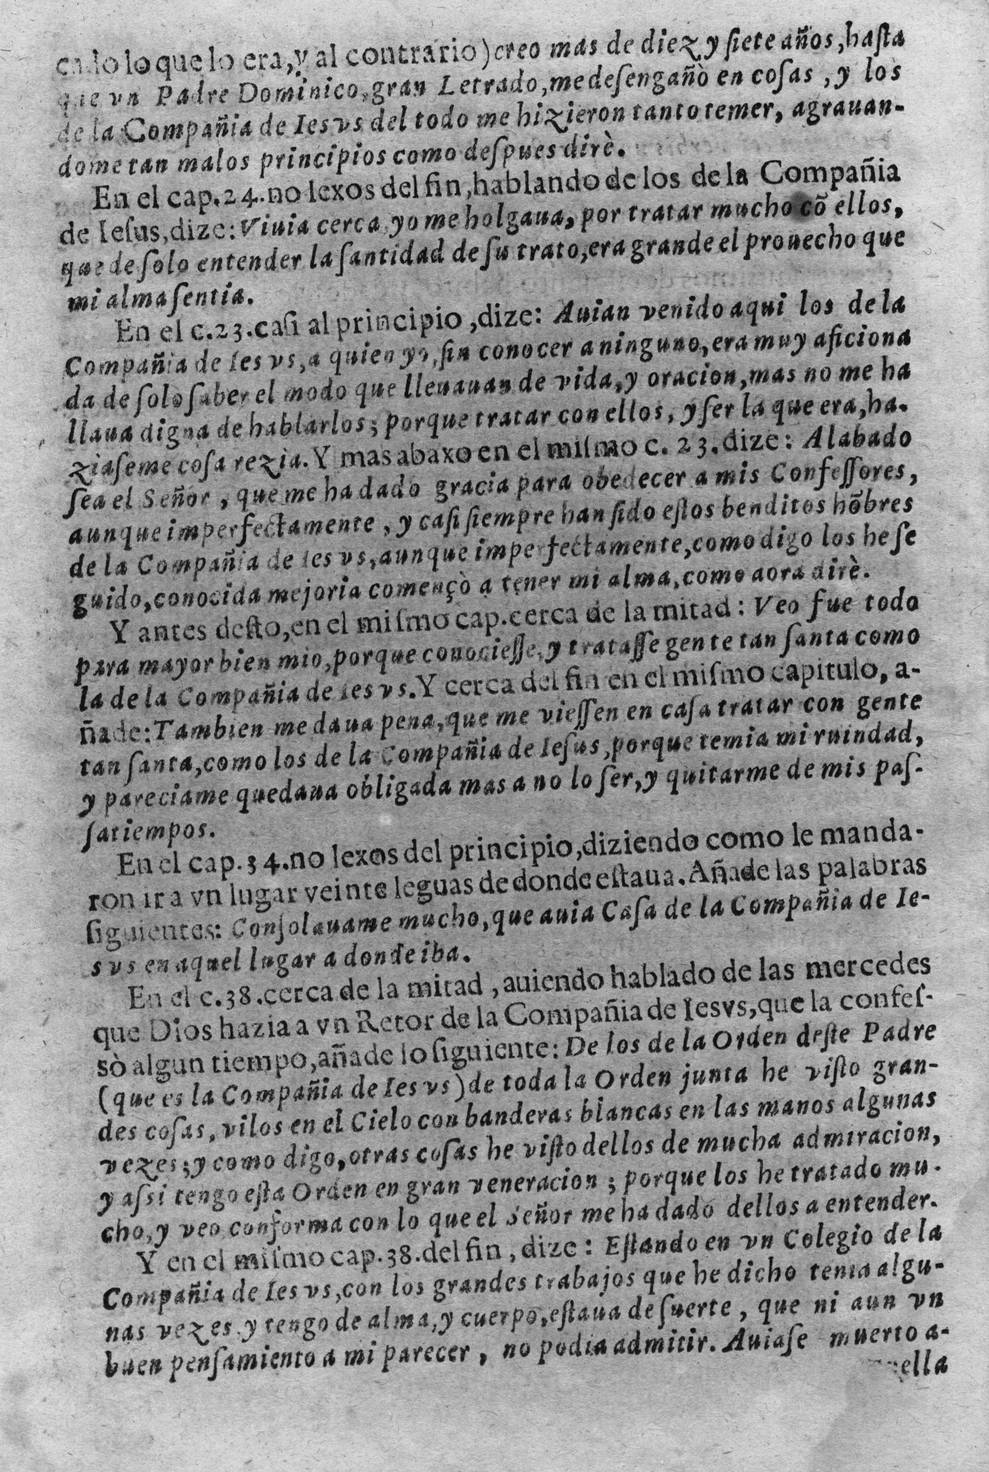 cado lo que lo era, y al contrario) creo mas de diez y ſiete años, haſta
que vn Padre Dominico, gran Letrado, me deſengañò en coſas, y los
de la Compañia de Iesvs del todo me hizieron tanto temer, agrauan-
dome tan malos principios como deſpues dirè.
En el cap. 24. no lexos del fin, hablando de los de la Compañia
de Ieſus, dize: Viuia cerca, yo me holgaua, por tratar mucho cõ ellos,
que de ſolo entender la ſantidad de ſu trato, era grande el prouecho que
mi alma ſentia.
En el c. 23. caſi al principio, dize: Auian venido aqui los de la
Compañia de Iesvs, a quien yo, ſin conocer a ninguno, era muy aficiona
da de ſolo ſaber el modo que lleuauan de vida, y oracion, mas no me ha
llaua digna de hablarlos; porque tratar con ellos, y ſer la que era, ha-
ziaſeme coſa rezia. Y mas abaxo en el miſmo c. 23. dize: Alabado
ſea el Señor, que me ha dado gracia para obedecer a mis Confeſſores,
aunque imperfectamente, y caſi ſiempre han ſido eſtos benditos hõbres
de la Compañia de Iesvs, aunque imperfectamente, como digo los he ſe
guido, conocida mejoria començò a tener mi alma, como aora dirè.
Y antes deſto, en el miſmo cap. cerca de la mitad: Veo fue todo
para mayor bien mio, porque conocieſſe, y trataſſe gente tan ſanta como
la de la Compañia de Iesvs. Y cerca del fin en el miſmo capitulo, a-
ñade: Tambien me daua pena, que me vieſſen en caſa tratar con gente
tan ſanta, como los de la Compañia de Ieſus, porque temia mi ruindad,
y pareciame quedaua obligada mas a no lo ſer, y quitarme de mis paſ-
ſatiempos.
En el cap. 34. no lexos del principio, diziendo como le manda-
ron ir a vn lugar veinte leguas de donde eſtaua. Añade las palabras
ſiguientes: Conſolauame mucho, que auia Caſa de la Compañia de Ie-
svs en aquel lugar a donde iba.
En el c. 38. cerca de la mitad, auiendo hablado de las mercedes
que Dios hazia a vn Retor de la Compañia de Iesvs, que la confeſ-
sò algun tiempo, añade lo ſiguiente: De los de la Orden deſte Padre
(que es la Compañia de Iesvs) de toda la Orden junta he viſto gran-
des coſas, vilos en el Cielo con banderas blancas en las manos algunas
vezes; y como digo, otras coſas he viſto dellos de mucha admiracion,
y aſsi tengo eſta Orden en gran veneracion; porque los he tratado mu-
cho, y veo conforma con lo que el Señor me ha dado dellos a entender.
Y en el miſmo cap. 38. del fin, dize: Eſtando en vn Colegio de la
Compañia de Iesvs, con los grandes trabajos que he dicho tenia algu-
nas vezes y tengo de alma, y cuerpo, eſtaua de ſuerte, que ni aun vn
buen penſamiento a mi parecer, no podia admitir. Auiaſe muerto a-
quella